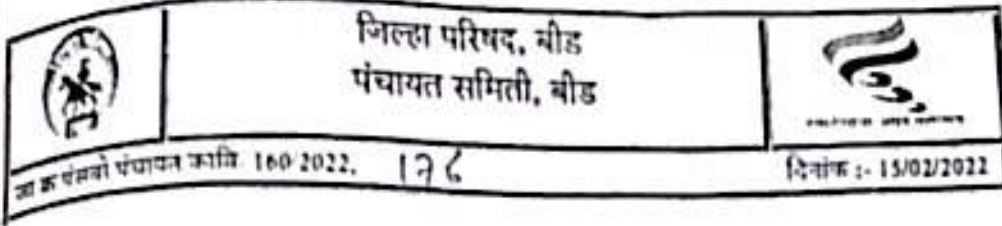 जिल्हा परिषद, बीड
पंचायत समिती, बीड
जा क्र पंसबी पंचायत कावि 160 2022, १२८
दिनांक :- 15/02/2022